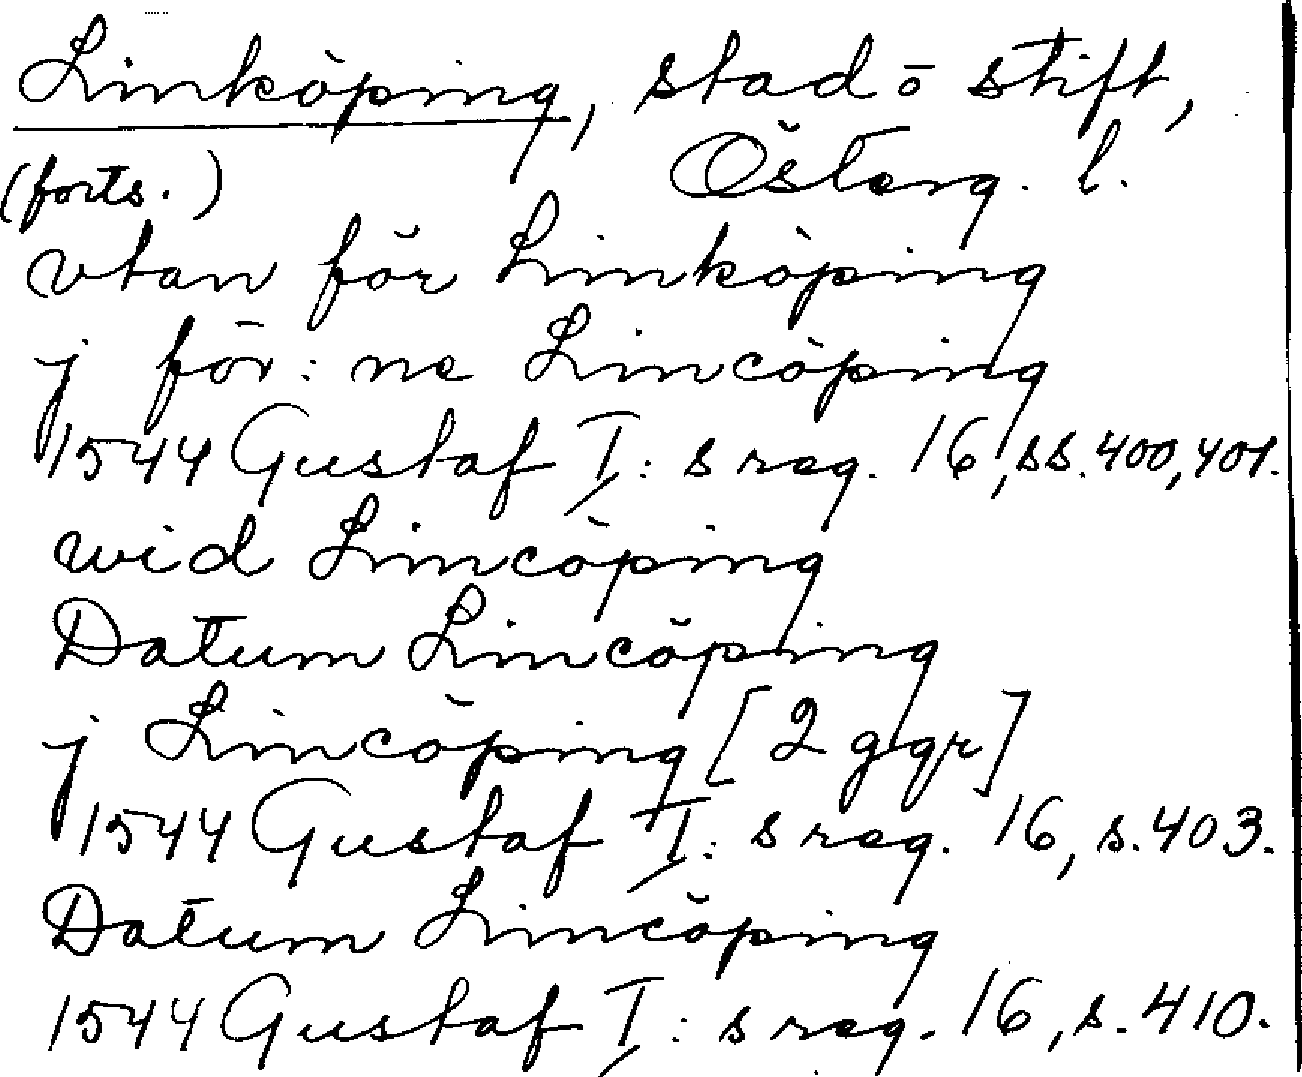 Linköping, stad ō stift,
(forts.) Österg. l.
vtan för Linköping
j för:ne Lincöping
1544 Gustaf I:s reg. 16, ss. 400, 401.
wid Lincöping
Datum Lincöping
j Lincöping [2 ggr]
1544 Gustaf I:s reg. 16, s. 403.
Datum Lincöping
1544 Gustaf I:s reg. 16, s. 410.